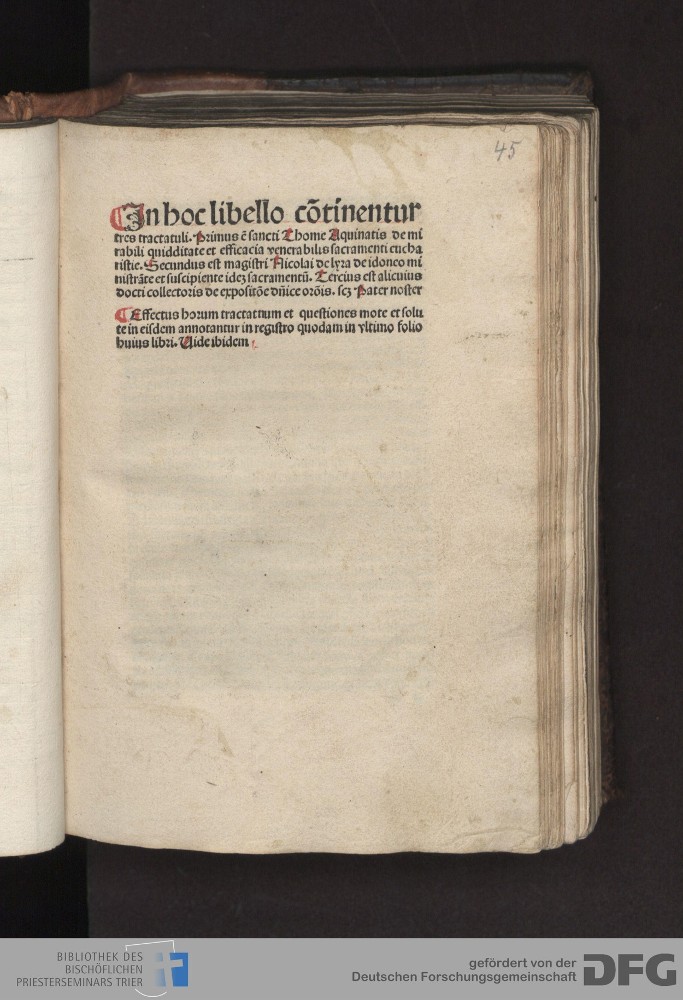 45
In hoc libello cõtinentur
tres tractatuli. Primus ē sancti Thome Aquinatis de mi
rabili quidditate et efficacia venerabilis sacramenti eucha
ristie. Secundus est magistri Nicolai de lyra de idoneo mi
nistrãte et suscipiente idez sacramentũ. Tercius est alicuius
docti collectoris de expositõe dñice orõis. scz Pater noster
Effectus horum tractatuum et questiones mote et solu
te in eisdem annotantur in registro quodam in vltimo folio
huius libri. Vide ibidem
BIBLIOTHEK DES
BISCHÖFLICHEN
PRIESTERSEMINARS TRIER
gefördert von der
Deutschen Forschungsgemeinschaft
DFG